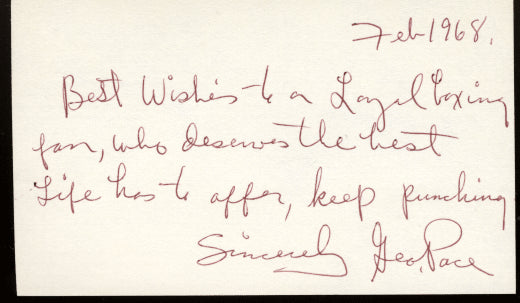 Feb 1968.
Best Wishes to a Loyal boxing
fan, who deserves the best
Life has to offer, keep punching
Sincerely Geo. Pace